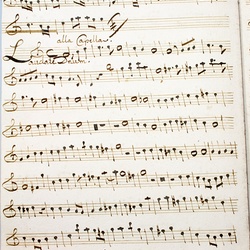 alla Capella
Laudate Deum